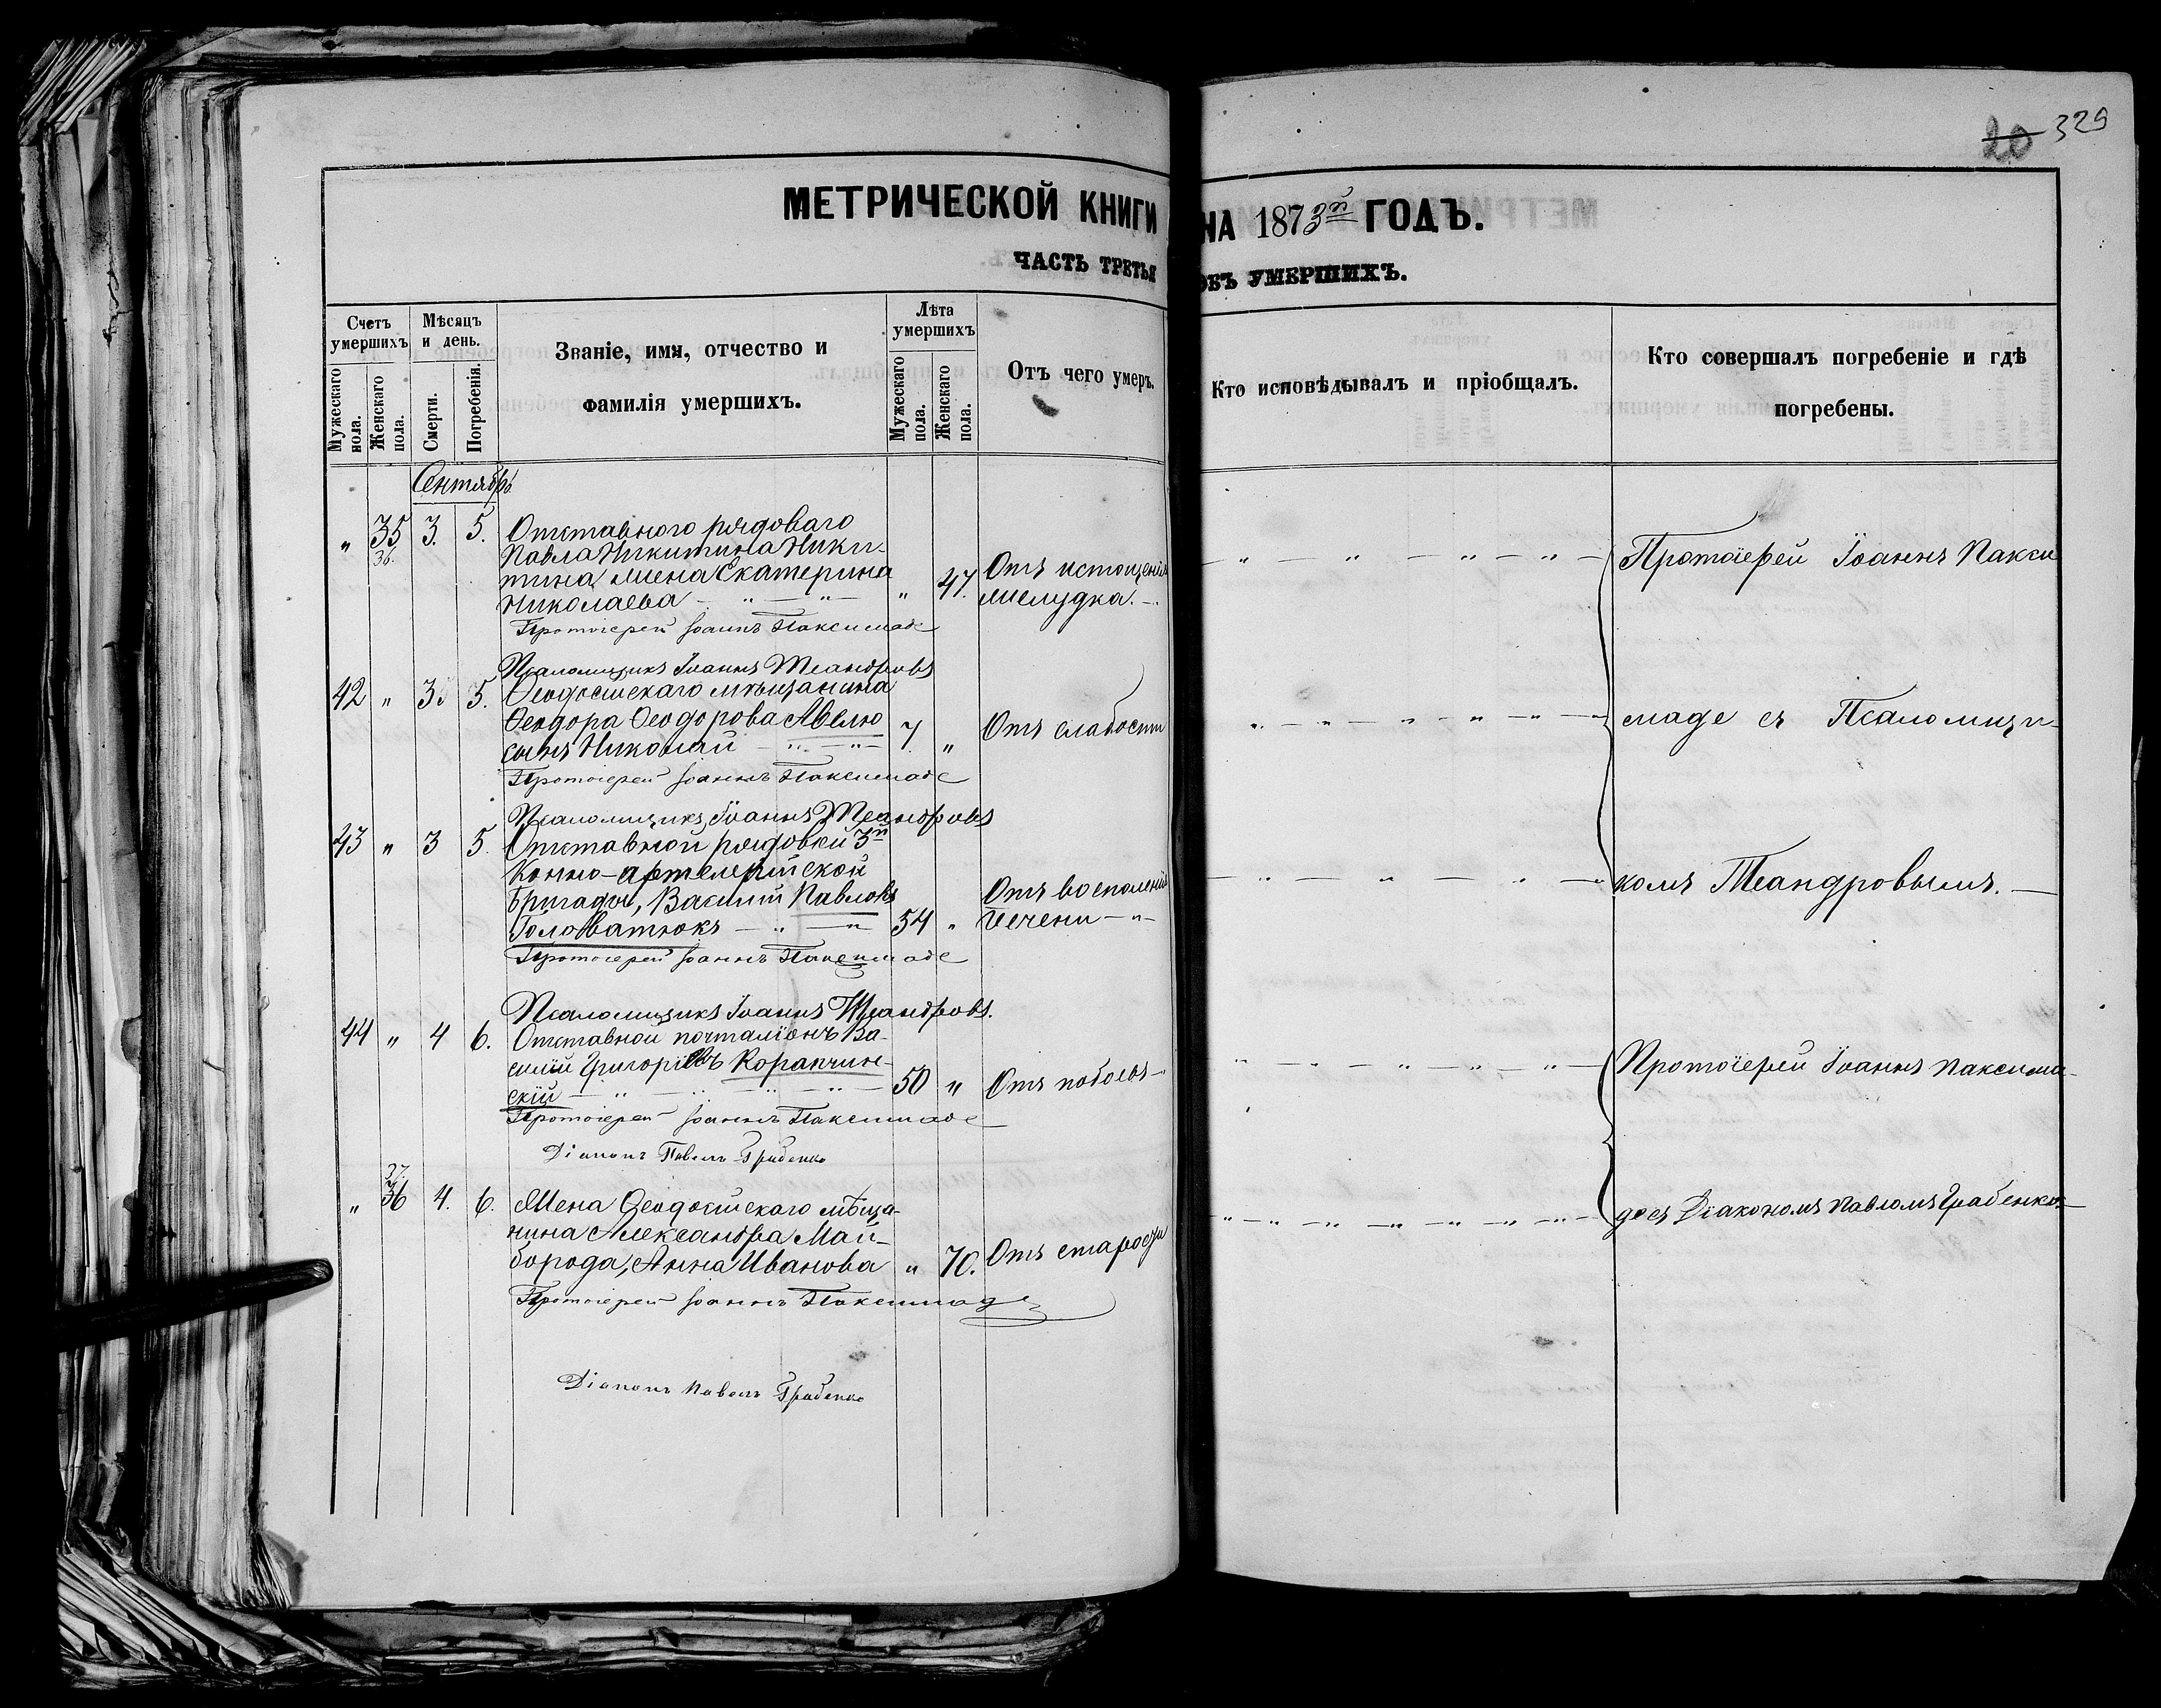 20 329
МЕТРИЧЕСКОЙ КНИГИ НА 1873й ГОДЪ.
ЧАСТЬ ТРЕТЬЯ ОБЪ УМЕРШИХЪ.
Счетъ умершихъ
Мужескаго пола.
Женскаго пола.
Мѣсяцъ и день.
Смерти.
Погребенія.
Званіе, имя, отчество и
фамилія умершихъ.
Лѣта умершихъ
Мужескаго пола.
Женскаго пола.
Отъ чего умеръ.
Кто исповѣдывалъ и пріобщалъ.
Кто совершалъ погребеніе и гдѣ
погребены.
Сентябрь
" 35 3. 5. Отставного рядоваго
36. Павла Никитина Ники-
тина жена Екатерина
Николаева " 47. Отъ истощенія
желудка.
Протоіерей Іоаннъ Паксимаде
Псаломщикъ Іоаннъ Теандровъ
42 " 3. 5. Ѳеодосійскаго мѣщанина
Ѳеодора Ѳеодорова Авелю
сынъ Николай 7 " Отъ слабости
Протоіерей Іоаннъ Паксимаде
Псаломщикъ Іоаннъ Теандровъ
43 " 3 5. Отставной рядовой 3й
Конно-артелерійской
бригады, Василій Павловъ
Головатюкъ 54 " Отъ воспаленія
печени
Протоіерей Іоаннъ Паксимаде
Псаломщикъ Іоаннъ Теандровъ.
Протоіерей Іоаннъ Пакси
маде съ Псаломщи-
комъ Теандровымъ.
44 " 4 6. Отставной почталіонъ Ва-
силій Григоріевъ Корапчин-
скій 50 " Отъ побоевъ
Протоіерей Іоаннъ Паксимаде
Діаконъ Павелъ Грабенко
37.
" 36 4. 6. Жена Ѳеодосійскаго мѣща-
нина Александра Май-
борода, Анна Иванова " 70. Отъ старости
Протоіерей Іоаннъ Паксимаде
Діаконъ Павелъ Грабенко
Протоіерей Іоаннъ Паксима-
де съ Діакономъ Павломъ Грабенко